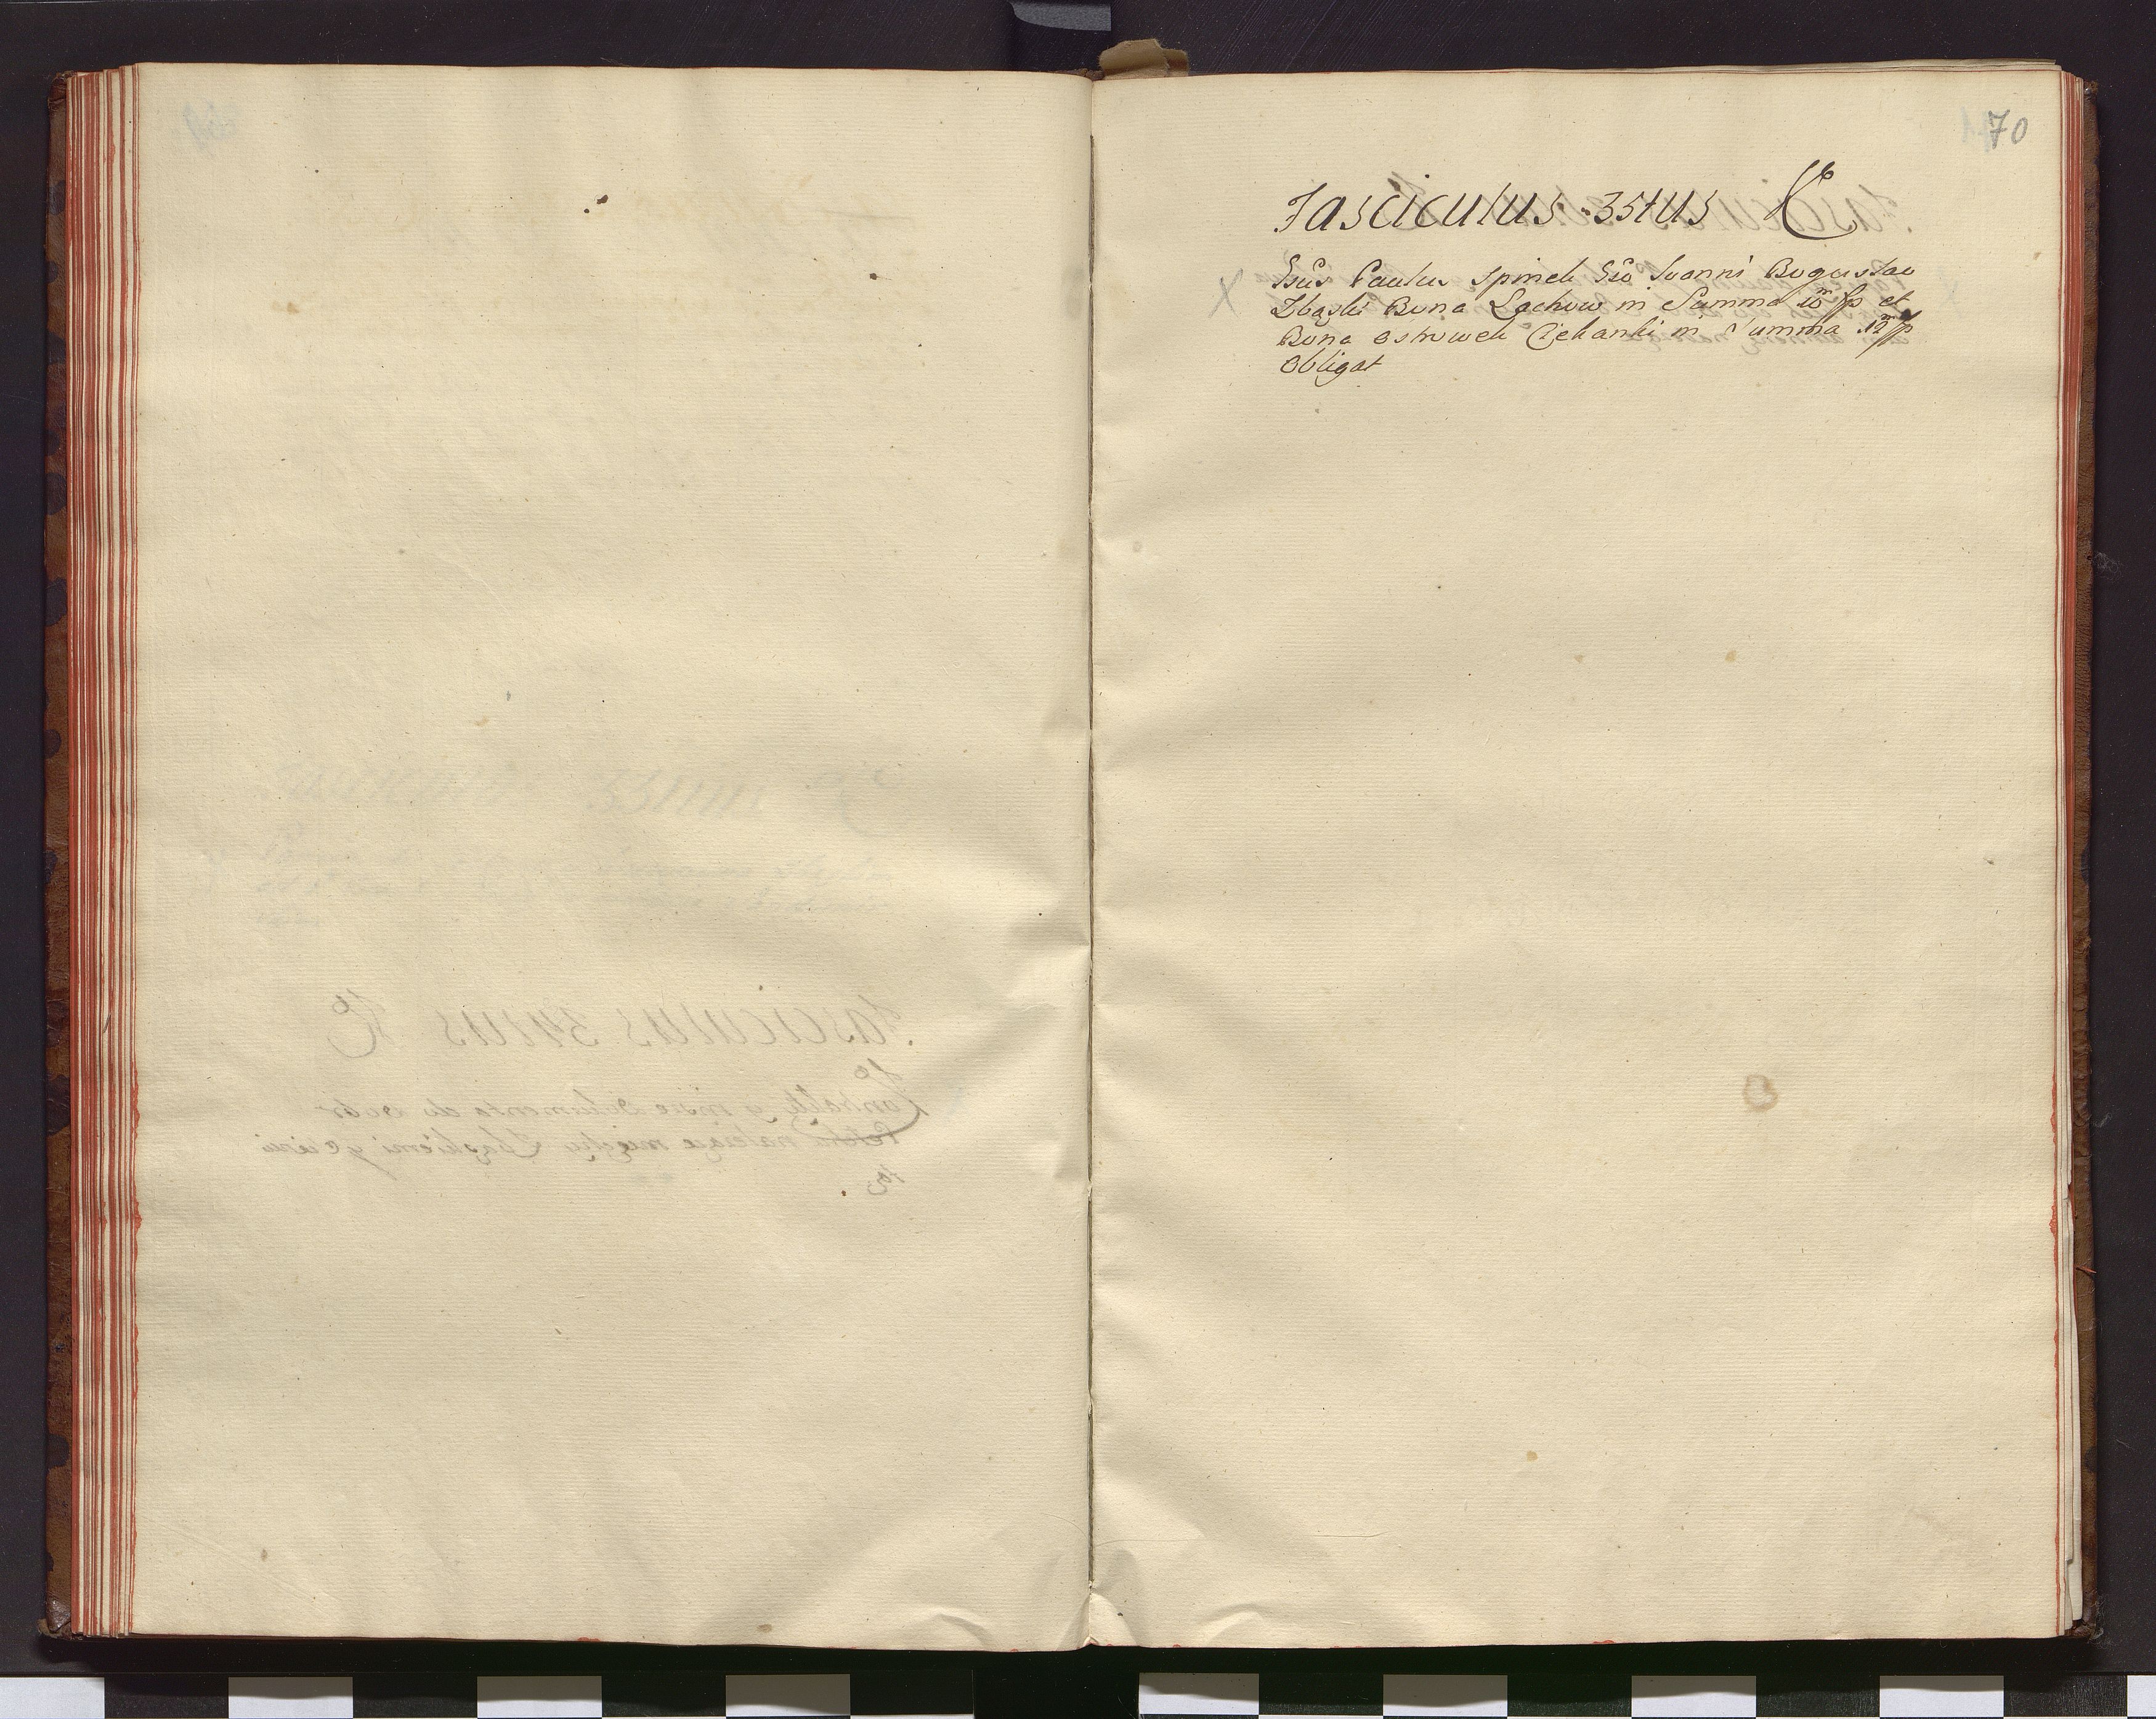 70
Fasciculus 35tus C
X Gsus Paulus Spinek Gso Ioanni Boguslao
Zbąski Bona Lachow in Summa 10m fp et
Bona Ostrowek Ciekanki in Summa 12m fp
Obligat